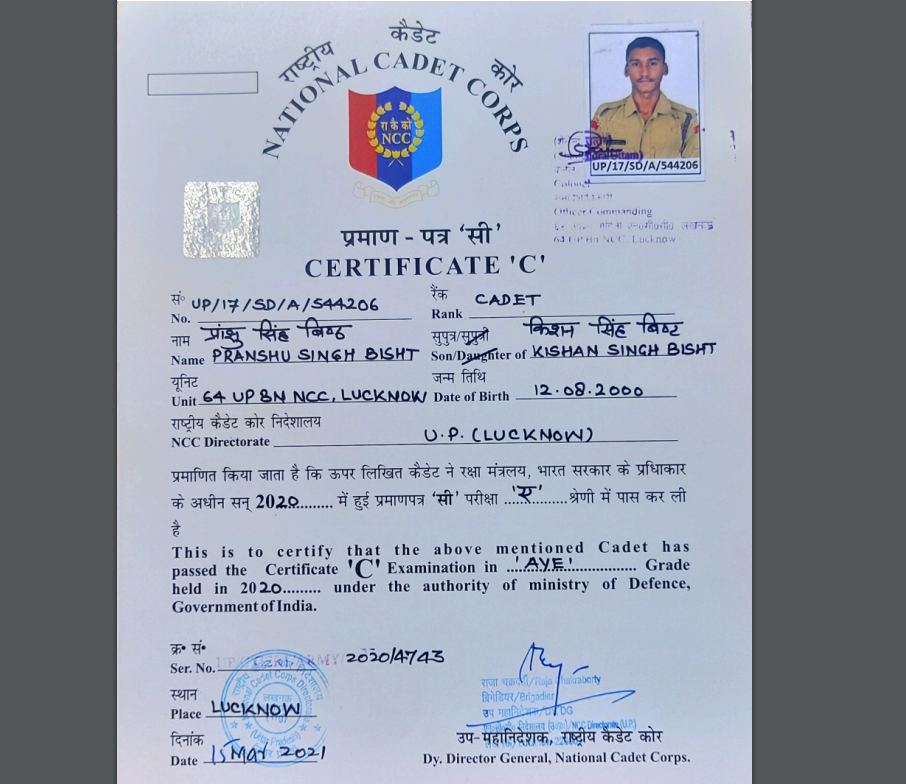 राष्ट्रीय कैडेट कोर
NATIONAL CADET CORPS
रा कै को
NCC
UP/17/SD/A/544206
Colonel
Officer Commanding
64 UP BN NCC, Lucknow
प्रमाण - पत्र ‘सी’
CERTIFICATE 'C'
सं० UP/17/SD/A/544206 रैंक CADET
No. Rank
नाम प्रांशु सिंह बिष्ट सुपुत्र/सुपुत्री किशन सिंह बिष्ट
Name PRANSHU SINGH BISHT Son/Daughter of KISHAN SINGH BISHT
यूनिट जन्म तिथि
Unit 64 UP BN NCC, LUCKNOW Date of Birth 12.08.2000
राष्ट्रीय कैडेट कोर निदेशालय
NCC Directorate U.P. (LUCKNOW)
प्रमाणित किया जाता है कि ऊपर लिखित कैडेट ने रक्षा मंत्रलय, भारत सरकार के प्रधिाकार
के अधीन सन् 2020......... में हुई प्रमाणपत्र ‘सी’ परीक्षा ...'ए'.......श्रेणी में पास कर ली
है
This is to certify that the above mentioned Cadet has
passed the Certificate 'C' Examination in ...'AYE'................ Grade
held in 2020......... under the authority of ministry of Defence,
Government of India.
क्र॰ सं॰
Ser. No. 2020/4743
स्थान
Place LUCKNOW
दिनांक
Date 15 MAY 2021
राजा चक्रवर्ती/Raja Chakraberty
ब्रिगेडियर/Brigadier
उप-महानिदेशक, राष्ट्रीय कैडेट कोर
Dy. Director General, National Cadet Corps.